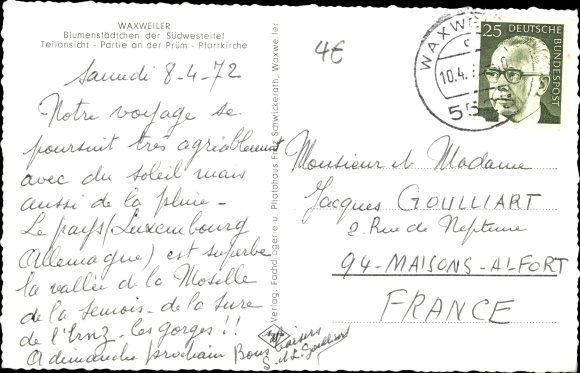 WAXWEILER
Blumenstädtchen der Südwesteifel
Teilansicht - Partie an der Prüm - Pfarrkirche
4€
Samedi 8-4-72
Notre voyage se
poursuit très agréablement
avec du soleil mais
aussi de la pluie -
Le pays (Luxembourg
Allemagne) est superbe
la vallée de la Moselle
de la Semois - de la Sure
de l'Ernz - les gorges !!
A dimanche prochain Bons baisers
Verlag: Fachdrogerie u. Photohaus Fritz Schwickerath, Waxweiler
Agfa
WAXWE
10.4.
55
25 DEUTSCHE BUNDESPOST
Monsieur et Madame
Jacques GOULLIART
2. Rue de Neptune
94-MAISONS-ALFORT
FRANCE